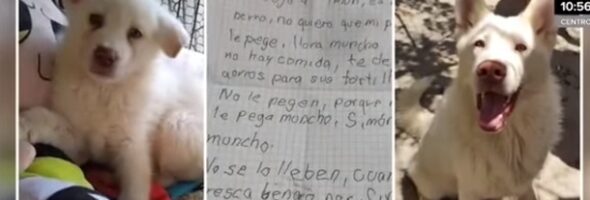 10:56
CENTRO
perro, no quero que mi p
le pege, llora muncho
no hay comida, te de
aorros para sus tortill
No le pegen, porque
le pega moncho, Simón
moncho.
No se lo lleben, cuan
resca bengo por Si